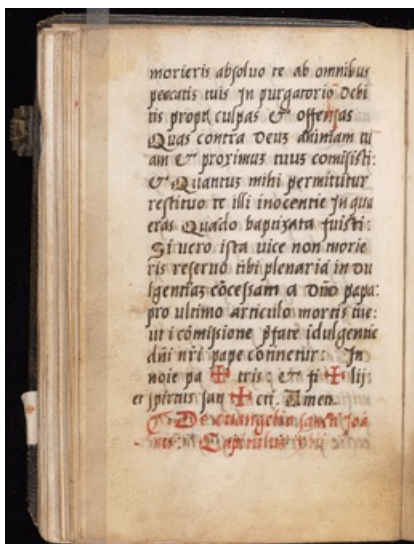 morieris absoluo te ab omnibus
peccatis tuis In purgatorio debi
tis propt culpas & offensas
Quas contra deuz animam tu
am & proximuz tuuz comisisti:
& Quantuz mihi permititur
restituo te illi inocentie In qua
eras Quādo baptizata fuisti:
Si uero ista uice non morie
ris reseruo tibi plenariā in du
lgentiaz cōcessam a dño papa:
pro ultimo articulo mortis tue:
ut i cōmisione pfate idulgentie
dñi nři pape continetur: In
noie pa ✠ tris: & fi ✠ lij:
et spiritus san ✠ cti. Amen.
De euangelio sancti Joā
nis: Capitulus